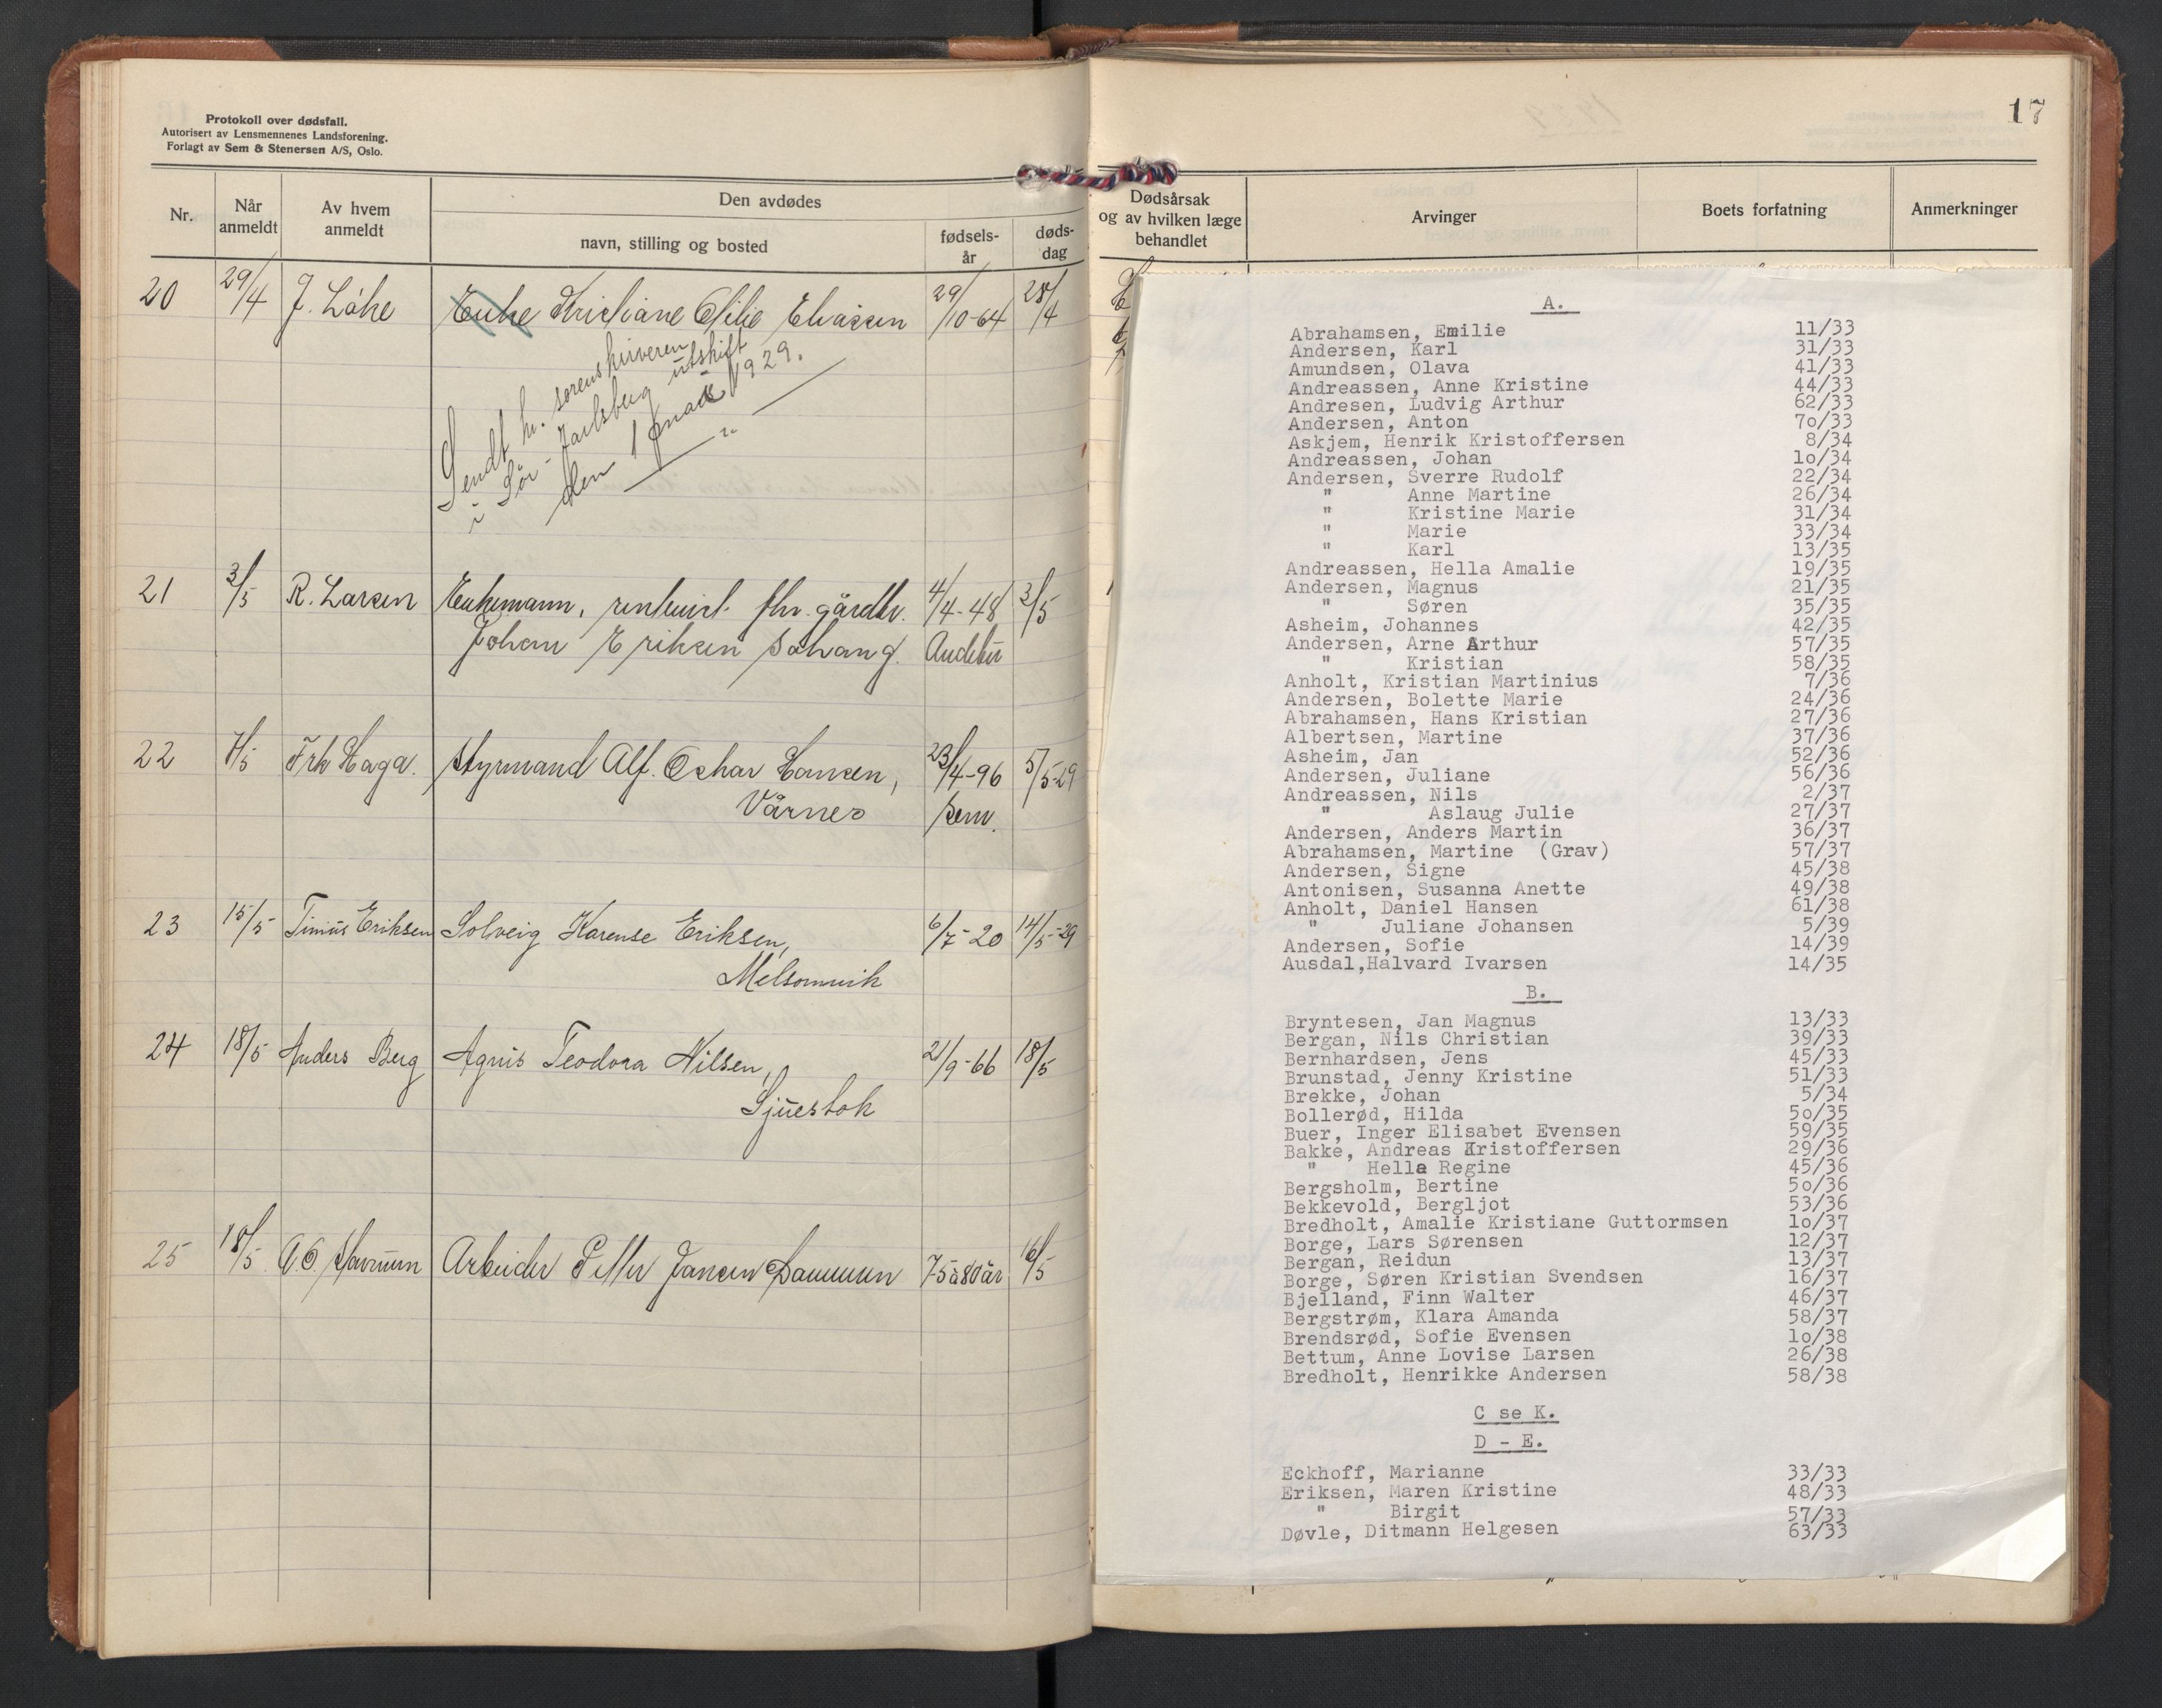 Protokoll over dødsfall.
Autorisert av Lensmennenes Landsforening.
Forlagt av Sem & Stenersen A/S, Oslo.
Nr.
Når anmeldt
Av hvem anmeldt
Den avdødes
navn, stilling og bosted
fødsels-
år
døds-
dag
20 29/4 J. Låke Enke Kristiane Otilie Eliassen 29/10-64 28/4
Sendt hr. sorenskriveren
i Sør-Jarlsberg utskift
den 1 mai 1929.
21 3/5 R. Larsen Enkemann, rentenist fhv. gårdbr. 4/4-48 3/5
Johan Eriksen Solvang. Andebu
22 7/5 Frk Haga. Styrmand Alf. Oskar Hansen, 23/4-96 5/5-29
Vårnes Sem.
23 15/5 Timius Eriksen Solveig Karense Eriksen, 6/7-20 14/5-29
Melsomvik
24 18/5 Anders Berg Agnis Teodora Nilsen, 21/9-66 18/5
Sjuestok
25 18/5 Arbeider Petter Jansen 75 à 80 år 16/5
17
Dødsårsak
og av hvilken læge
behandlet
Arvinger
Boets forfatning
Anmerkninger
A.
Abrahamsen, Emilie 11/33
Andersen, Karl 31/33
Amundsen, Olava 41/33
Andreassen, Anne Kristine 44/33
Andresen, Ludvig Arthur 62/33
Andersen, Anton 7o/33
Askjem, Henrik Kristoffersen 8/34
Andreassen, Johan lo/34
Andersen, Sverre Rudolf 22/34
" Anne Martine 26/34
" Kristine Marie 31/34
" Marie 33/34
" Karl 13/35
Andreassen, Hella Amalie 19/35
Andersen, Magnus 21/35
" Søren 35/35
Asheim, Johannes 42/35
Andersen, Arne Arthur 57/35
" Kristian 58/35
Anholt, Kristian Martinius 7/36
Andersen, Bolette Marie 24/36
Abrahamsen, Hans Kristian 27/36
Albertsen, Martine 37/36
Asheim, Jan 52/36
Andersen, Juliane 56/36
Andreassen, Nils 2/37
" Aslaug Julie 27/37
Andersen, Anders Martin 36/37
Abrahamsen, Martine (Grav) 57/37
Andersen, Signe 45/38
Antonisen, Susanna Anette 49/38
Anholt, Daniel Hansen 61/38
" Juliane Johansen 5/39
Andersen, Sofie 14/39
Ausdal,Halvard Ivarsen 14/35
B.
Bryntesen, Jan Magnus 13/33
Bergan, Nils Christian 39/33
Bernhardsen, Jens 45/33
Brunstad, Jenny Kristine 51/33
Brekke, Johan 5/34
Bollerød, Hilda 5o/35
Buer, Inger Elisabet Evensen 59/35
Bakke, Andreas Kristoffersen 29/36
" Hella Regine 45/36
Bergsholm, Bertine 5o/36
Bekkevold, Bergljot 53/36
Bredholt, Amalie Kristiane Guttormsen lo/37
Borge, Lars Sørensen 12/37
Bergan, Reidun 13/37
Borge, Søren Kristian Svendsen 16/37
Bjelland, Finn Walter 46/37
Bergstrøm, Klara Amanda 58/37
Brendsrød, Sofie Evensen lo/38
Bettum, Anne Lovise Larsen 26/38
Bredholt, Henrikke Andersen 58/38
C se K.
D - E.
Eckhoff, Marianne 33/33
Eriksen, Maren Kristine 48/33
" Birgit 57/33
Døvle, Ditmann Helgesen 63/33